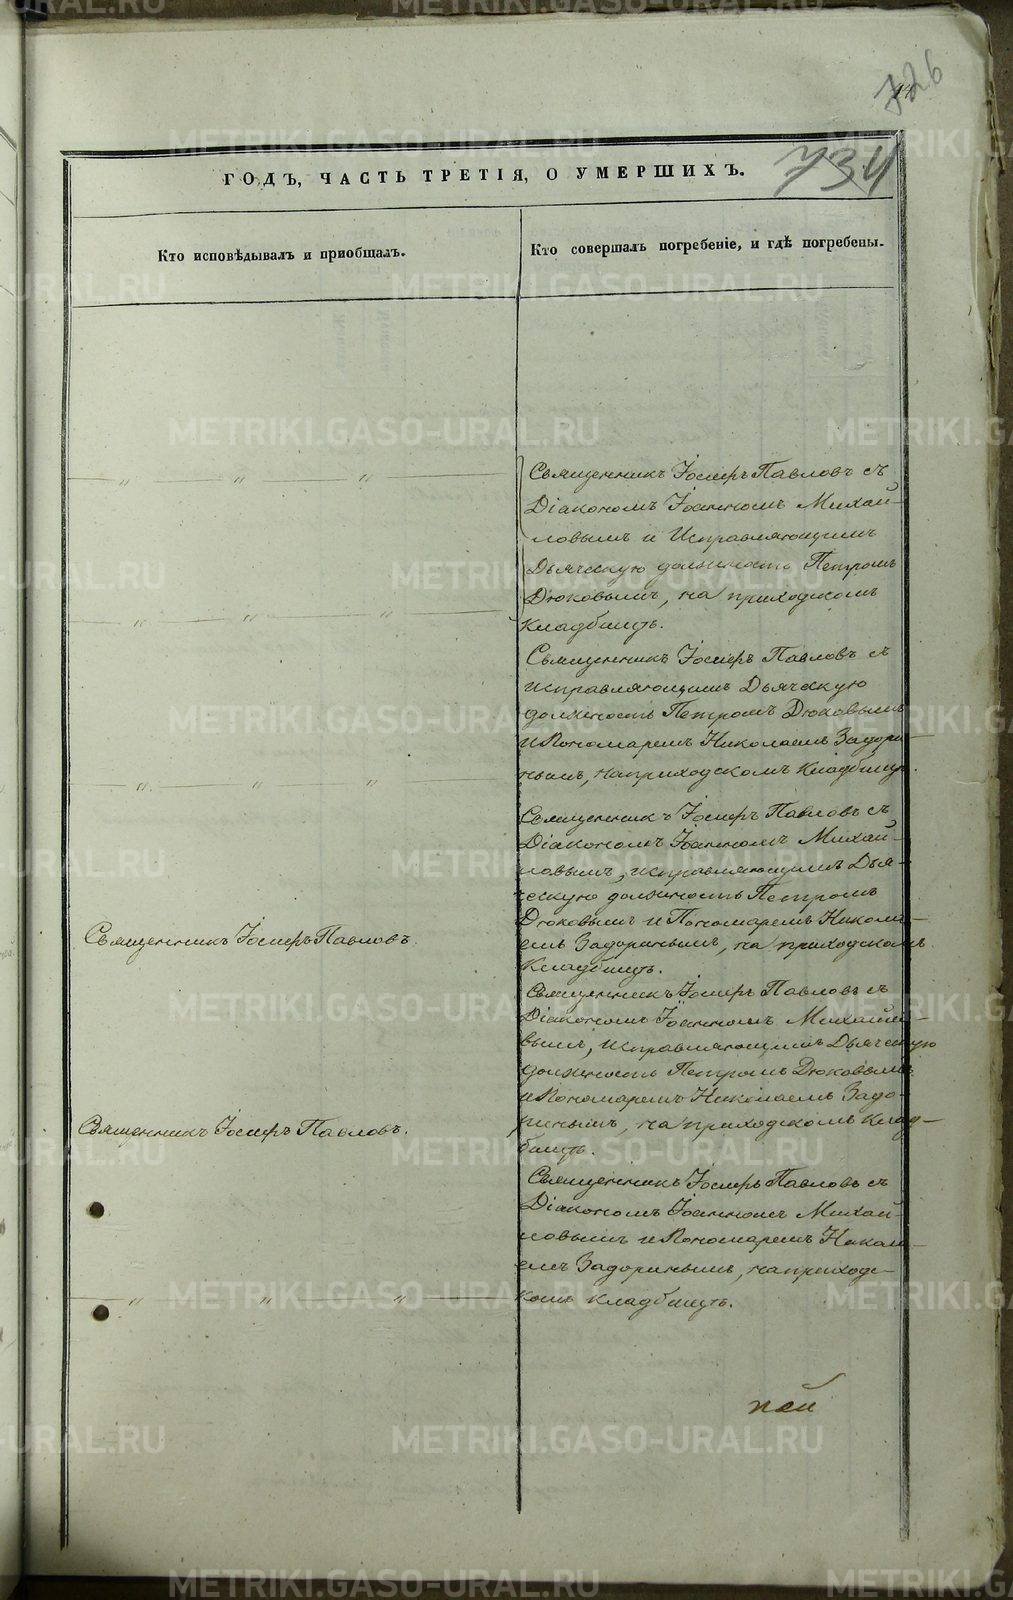 726
734
ГОДЪ, ЧАСТЬ ТРЕТІЯ, О УМЕРШИХЪ.
Кто исповѣдывалъ и приобщалъ.
Кто совершалъ погребеніе, и гдѣ погребены.
" " "
Священникъ Іосифъ Павловъ съ
Діакономъ Іоанномъ Михай-
ловымъ и Исправляющимъ
Дьяческую должность Петромъ
Дюковымъ, на приходскомъ
" " "
Кладбищѣ.
Священникъ Іосифъ Павловъ съ
исправляющимъ Дьяческую
должность Петромъ Дюковымъ
и Пономаремъ Николаемъ Задори-
нымъ, на приходскомъ Кладбищѣ.
" " "
Священникъ Іосифъ Павловъ съ
Діакономъ Іоанномъ Михай-
ловымъ, исправляющимъ Дья-
ческую должность Петромъ
Дюковымъ и Пономаремъ Никола-
емъ Задоринымъ, на приходскомъ
Кладбищѣ.
Священникъ Іосифъ Павловъ.
Священникъ Іосифъ Павловъ съ
Діакономъ Іоанномъ Михайло-
вымъ, исправляющимъ Дьяческую
должность Петромъ Дюковымъ
и Пономаремъ Николаемъ Задо-
ринымъ, на приходскомъ Клад-
бищѣ.
Священникъ Іосифъ Павловъ.
Священникъ Іосифъ Павловъ съ
Діакономъ Іоанномъ Михай-
ловымъ и Пономаремъ Никола-
емъ Задоринымъ, на приходс-
комъ кладбищѣ.
" " "
METRIKI.GASO-URAL.RU